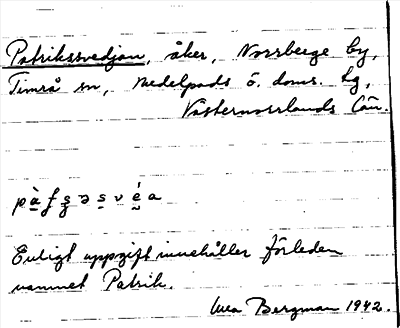 Patrikssvedjan, åker, Norrberge by,
Timrå sn, Medelpads ö. doms. tg,
Västernorrlands län.
Enligt uppgift innehåller förleden
namnet Patrik.
Bergman 1942.